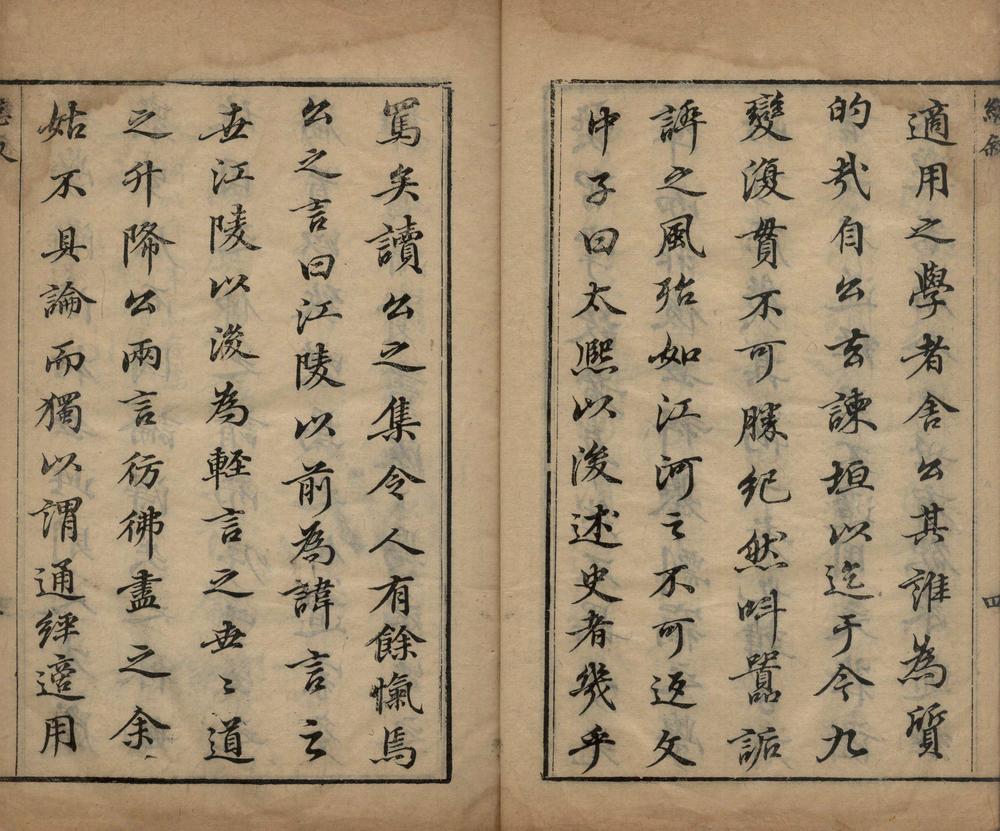 總敘
四
適用之學者舍公其誰為質
的㢤自公去諫垣以迄于今九
變復貫不可勝紀然呌囂詬
誶之風殆如江河之不可返文
中子曰太熙以後述史者幾乎
罵矣讀公之集令人有餘愾焉
公之言曰江陵以前為諱言之
世江陵以後為輕言之世〻道
之升降公兩言彷彿盡之余
姑不具論而獨以謂通經適用